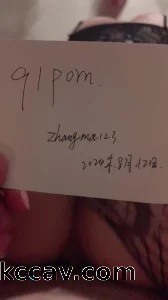 91porn.
zhangma123.
2024年.8月.12日.
kccav.com